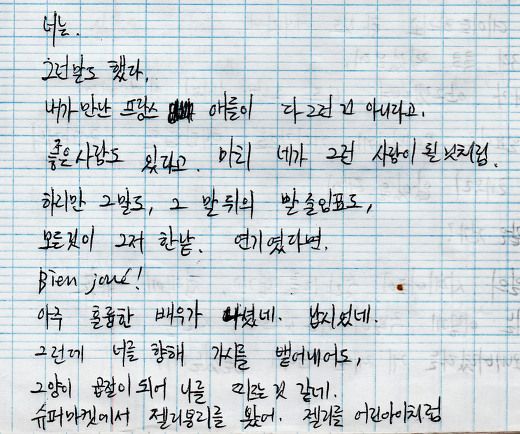 너는.
그런말도 했다,
내가 만난 프랑스 애들이 다 그런 건 아니라고.
좋은 사람도 있다고. 마치 네가 그런 사람이 될 것처럼.
하지만 그 말도, 그 말 뒤의 말줄임표도,
모든것이 그저 한낱. 연기였다면.
Bien joué!
아주 훌륭한 배우가 나셨네. 납시셨네.
그런데 너를 향해 가시를 뱉어내어도,
그 양이 곱절이 되어 나를 찌르는 것 같네.
슈퍼마켓에서 젤리봉지를 봤어. 젤리를 어린아이처럼